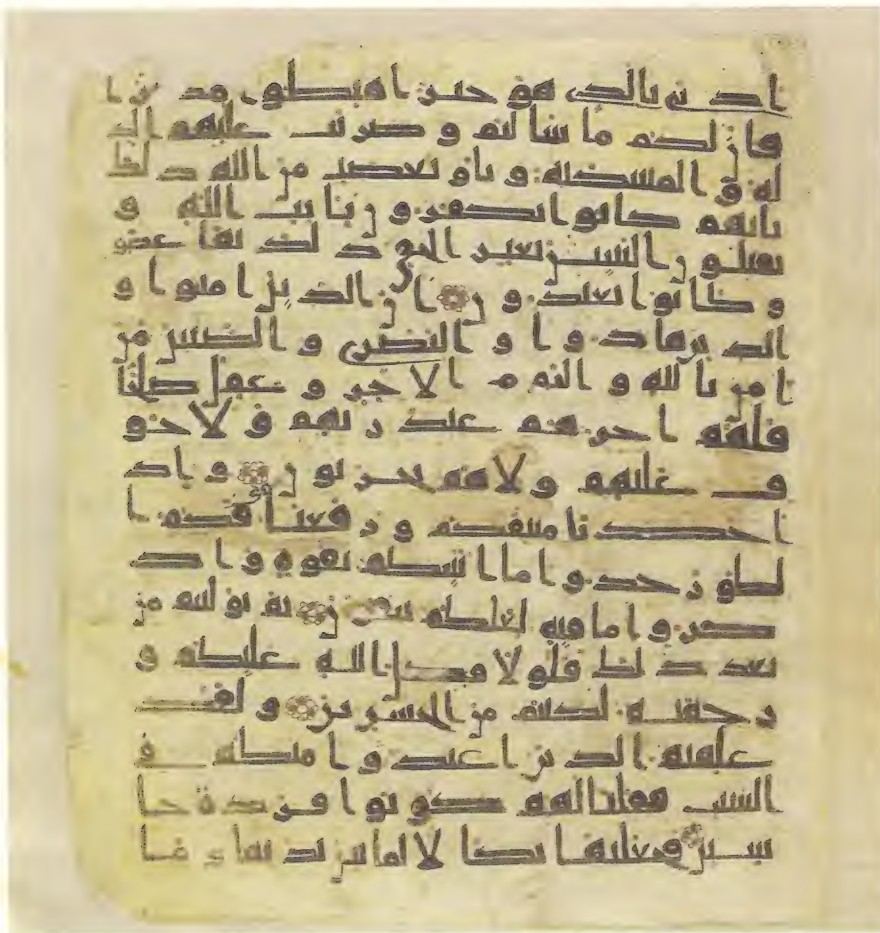 ادنى بالذى هو خير اهبطوا مصرا
فان لكم ما سالتم و ضربت عليهم الذ
لة و المسكنة و باو بغضب من الله ذلك
بانهم كانوا يكفرون بايت الله و
يقتلون النبين بغير الحق ذلك بما عصوا
و كانوا يعتدون ان الذين امنوا و
الذين هادوا و النصرى و الصبين من
امن بالله و اليوم الاخر و عمل صلحا
فلهم اجرهم عند ربهم و لا خو
ف عليهم و لا هم يحزنون و اذ
اخذنا ميثقكم و رفعنا فوقكم ا
لطور خذوا ما اتينكم بقوة و اذ
كروا ما فيه لعلكم تتقون ثم توليتم من
بعد ذلك فلولا فضل الله عليكم و
رحمته لكنتم من الخسرين و لقد
علمتم الذين اعتدوا منكم في
السبت فقلنا لهم كونوا قردة خا
سين فجعلنها نكالا لما بين يديها و ما